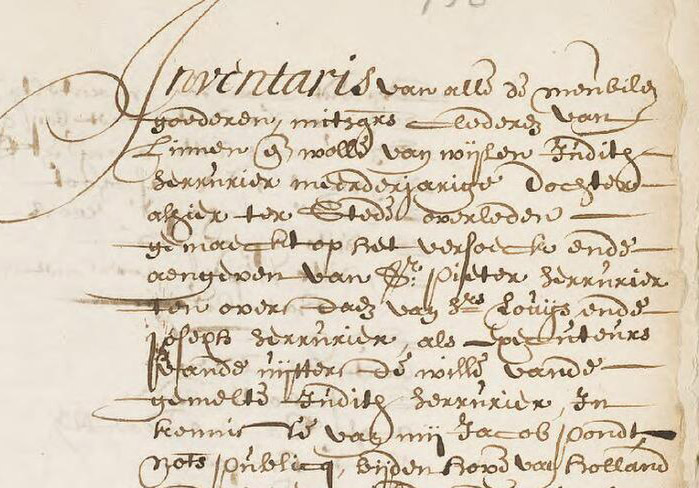 Inventaris van alle de meubile
goederen, mitzgrs clederen van
Linnen en wolle van wijlen Judith
Zerrurier meerderjarige dochter
alhier ter Stede overleden
gemaeckt op het versoeck ende
aengeven van Sr. Pieter Zerrurier
ten overstaen van Srs Louijs ende
Joseph Zerrurier, als Executeurs
vande uijtterste wille vande
gemelte Judith Zerrurier, In
kennisse van mij Jacob Pondt
Nots publicq, bijden hove van Holland